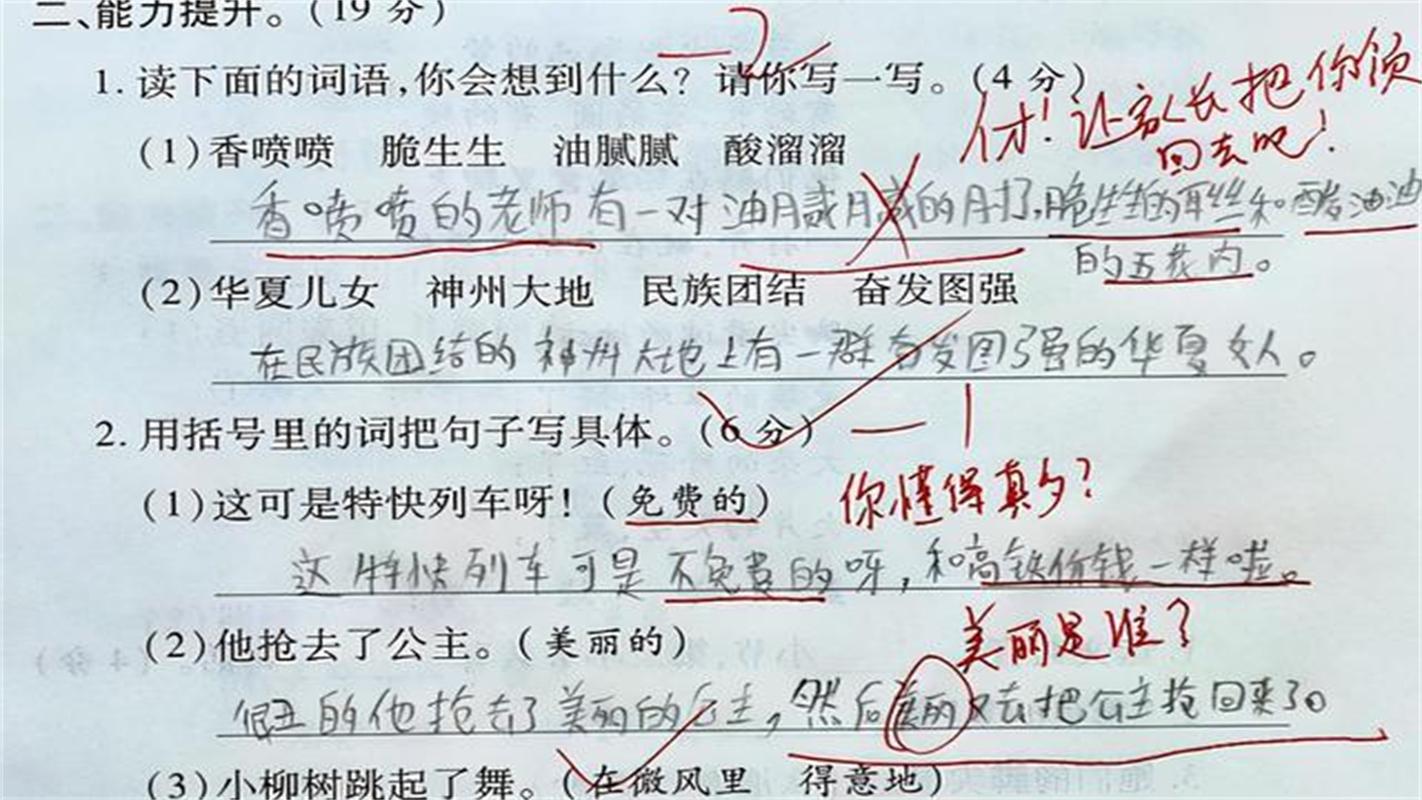 二、能力提升。(19 分)
1. 读下面的词语,你会想到什么? 请你写一写。(4 分)
(1) 香喷喷 脆生生 油腻腻 酸溜溜
才! 让家长把你领
回去吧!
香喷喷的老师有一对油腻腻的肘子,脆生生的耳丝和酸油油
的五花肉。
(2) 华夏儿女 神州大地 民族团结 奋发图强
在民族团结的神州大地上有一群奋发图强的华夏女人。
2. 用括号里的词把句子写具体。(6 分) —1
(1) 这可是特快列车呀! (免费的) 你懂得真多?
这特快列车可是不免费的呀,和高铁价钱一样啦。
(2) 他抢去了公主。(美丽的)
美丽是谁?
很丑的他抢去了美丽的公主,然后美丽又去把公主抢回来了。
(3) 小柳树跳起了舞。(在微风里 得意地)